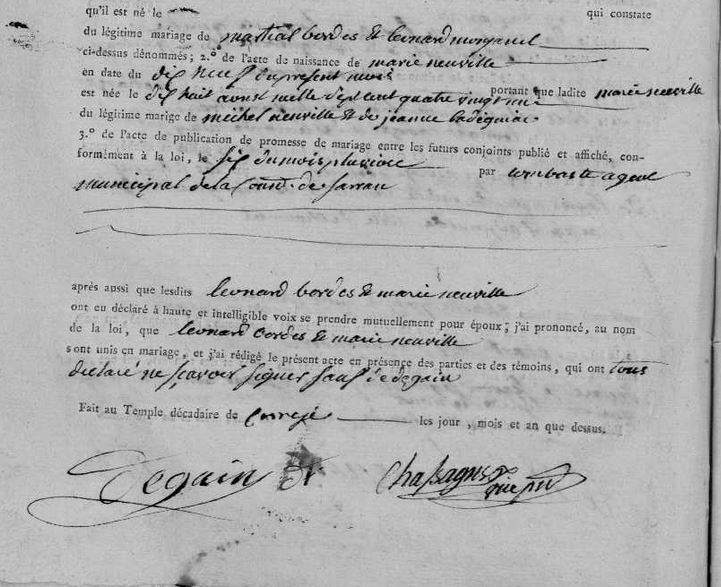 qu'il est né le qui constate
du légitime mariage de martial bordes & leonard
ci-dessus dénommés; 2.° de l'acte de naissance de marie neuville
en date du dix neuf du present mois
est née le dix huit aoust mille sept cent quatre vingt portant que ladite marie neuville
du légitime marige de michel neuville & de jeanne
3.° de l'acte de publication de promesse de mariage entre les futurs conjoints publié et affiché, con-
formément à la loi, le six du mois pluviose par combaste agent
municipal de la de sarran
après aussi que lesdits leonard bordes & marie neuville
ont eu déclaré à haute et intelligible voix se prendre mutuellement pour époux; j'ai prononcé, au nom
de la loi, que leonard bordes & marie neuville
sont unis en mariage, et j'ai rédigé le présent acte en présence des parties et des témoins, qui ont tous
declaré ne sçavoir signer sauf le degain
Fait au Temple décadaire de Correze les jour, mois et an que dessus.
Degain Chassagne